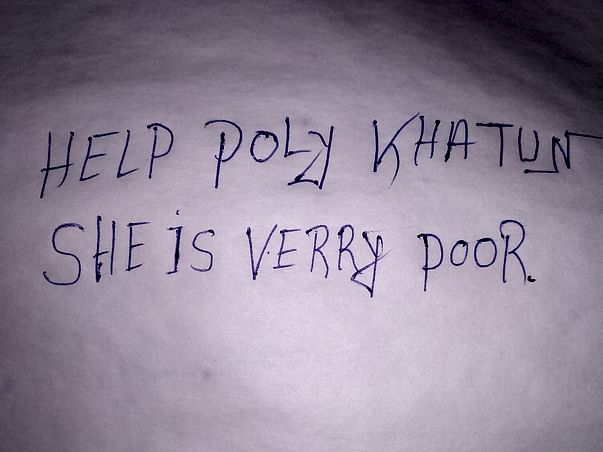 HELP POLY KHATUN
SHE iS VERRY POOR.